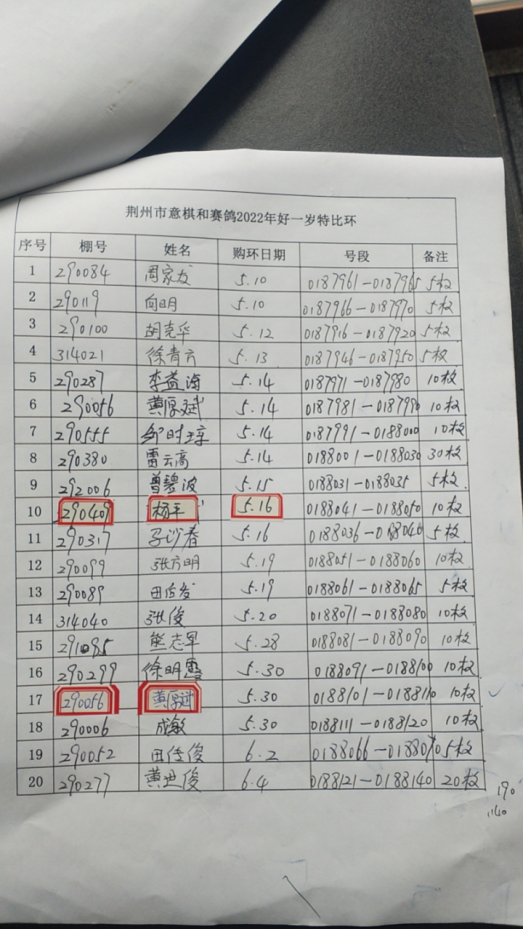 荆州市意棋和赛鸽2022年好一岁特比环
序号 棚号 姓名 购环日期 号段 备注
1 290084 周家发 5.10 0187961-0187965 5枚
2 290119 向明 5.10 0187966-0187970 5枚
3 290100 胡克华 5.12 0187916-0187920 5枚
4 314021 徐青方 5.13 0187946-0187950 5枚
5 290287 李益海 5.14 0187971-0187980 10枚
6 290056 黄厚斌 5.14 0187981-0187990 10枚
7 290555 5.14 0187991-0188000 10枚
8 290380 雷云高 5.14 0188001-0188030 30枚
9 292006 曾碧波 5.15 0188031-0188035 5枚
10 290409 杨平 5.16 0188041-0188050 10枚
11 290317 5.16 0188036-0188040 5枚
12 290099 张方明 5.19 0188051-0188060 10枚
13 290089 田传发 5.19 0188061-0188065 5枚
14 314040 张俊 5.20 0188071-0188080 10枚
15 熊志军 5.28 0188081-0188090 10枚
16 290299 徐明 5.30 0188091-0188100 10枚
17 290056 黄厚斌 5.30 0188101-0188110 10枚
18 290006 成敏 5.30 0188111-0188120 10枚
19 290052 田传俊 6.2 0188066-0188070 5枚
20 290277 黄世俊 6.4 0188121-0188140 20枚